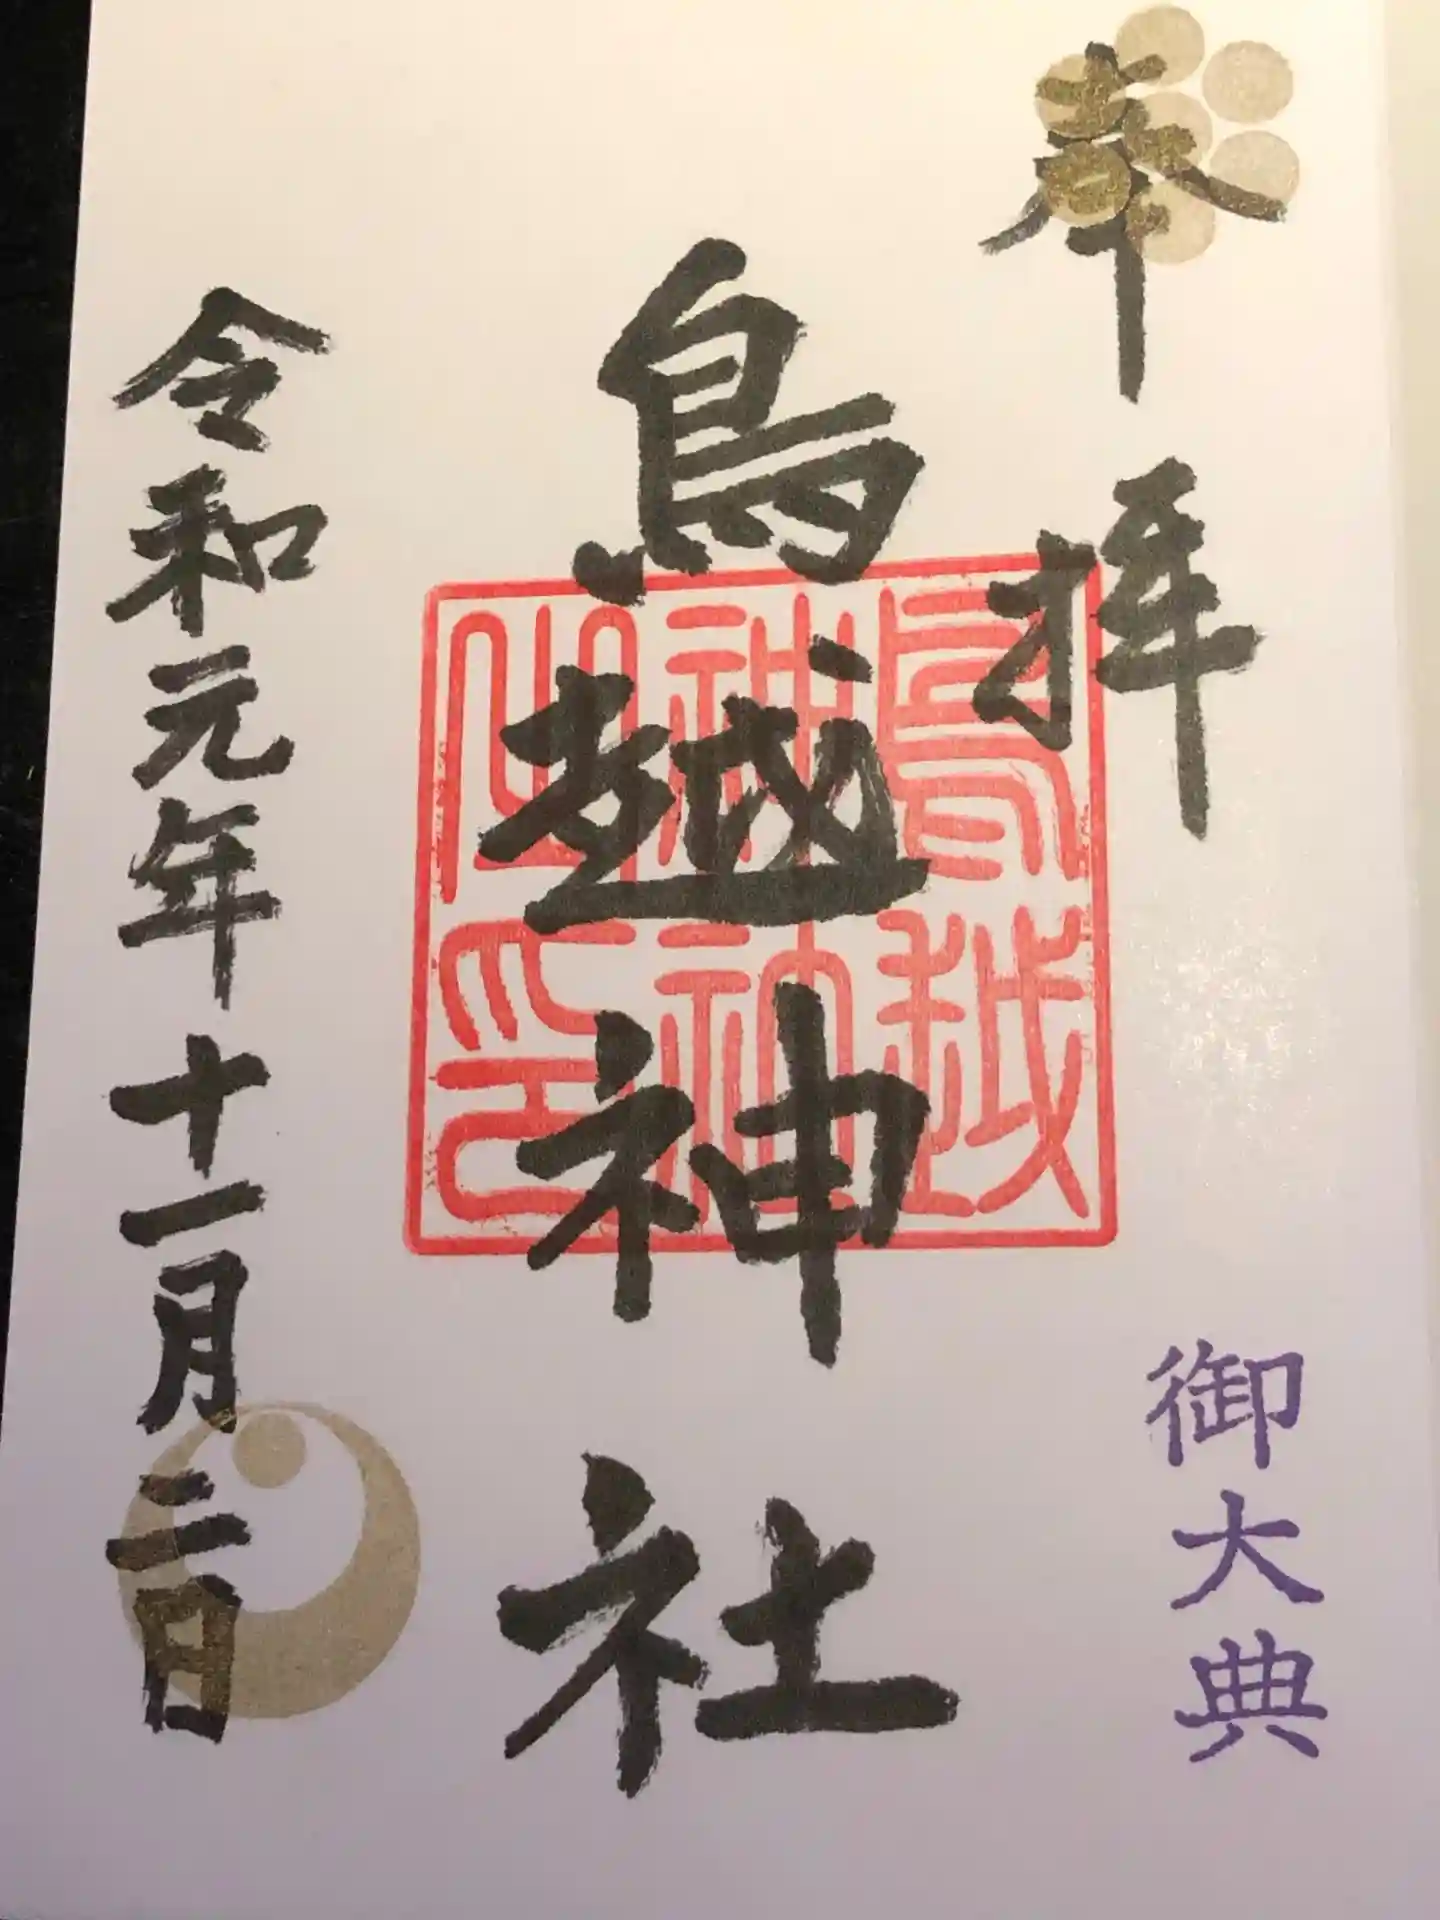 奉拝
御大典
鳥越神社
鳥越神社之印
令和元年十一月二日